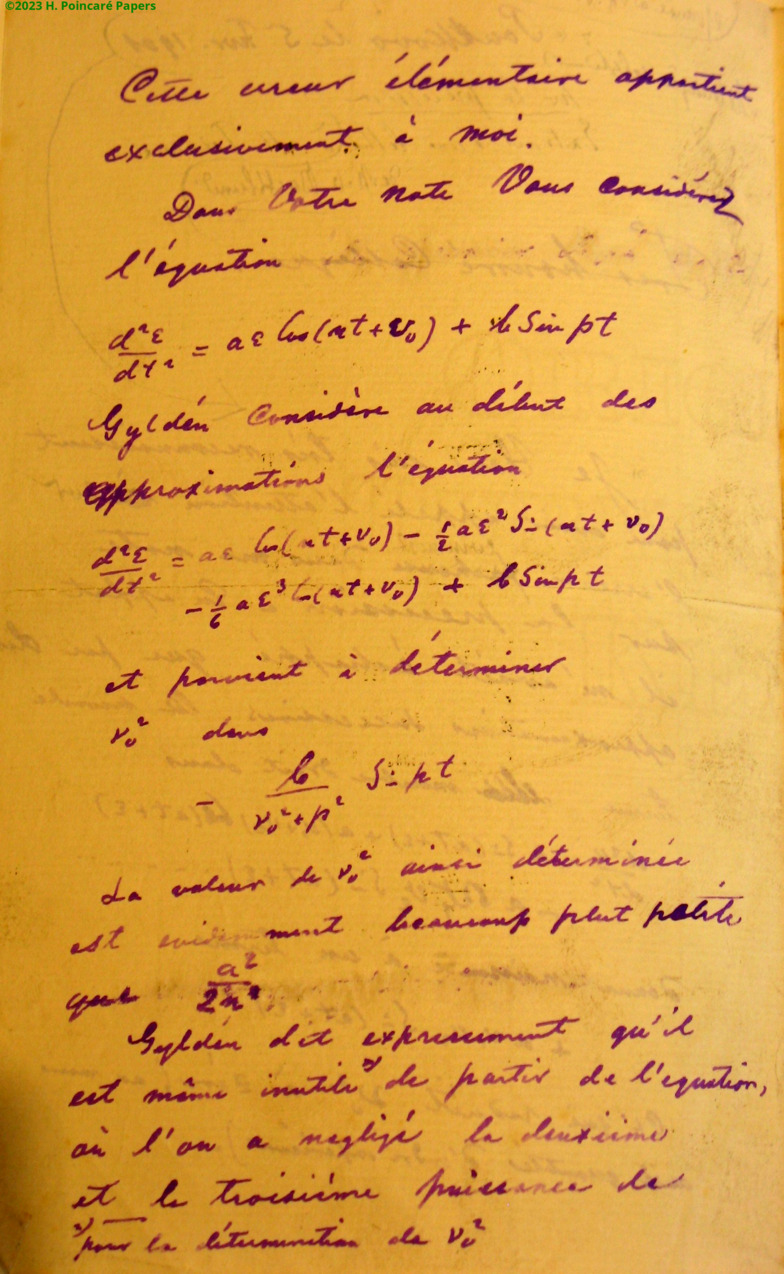 ©2023 H. Poincaré Papers
Cette erreur élémentaire appartient
exclusivement à moi.
Dans Votre note Vous considérez
l'équation
d²ε/dt² = aε Cos(nt+v₀) + b Sin pt
Gyldén Considère au début des
approximations l'équation
d²ε/dt² = aε Cos(nt+ν₀) − ½aε² Sin(nt + ν₀)
− ⅙ aε³ Cos(nt+ν₀) + b Sin pt
et parvient à déterminer
ν₀² dans
− b/(ν₀²+p²) Sin pt
La valeur de ν₀² ainsi déterminée
est evidemment beaucoup plut petite
que a²/2n².
Gyldén dit expressement qu'il
est même inutile *) de partir de l'equation,
où l'on a negligé la deuxième
et la troisième puissance de
*) pour la détermination de ν₀²